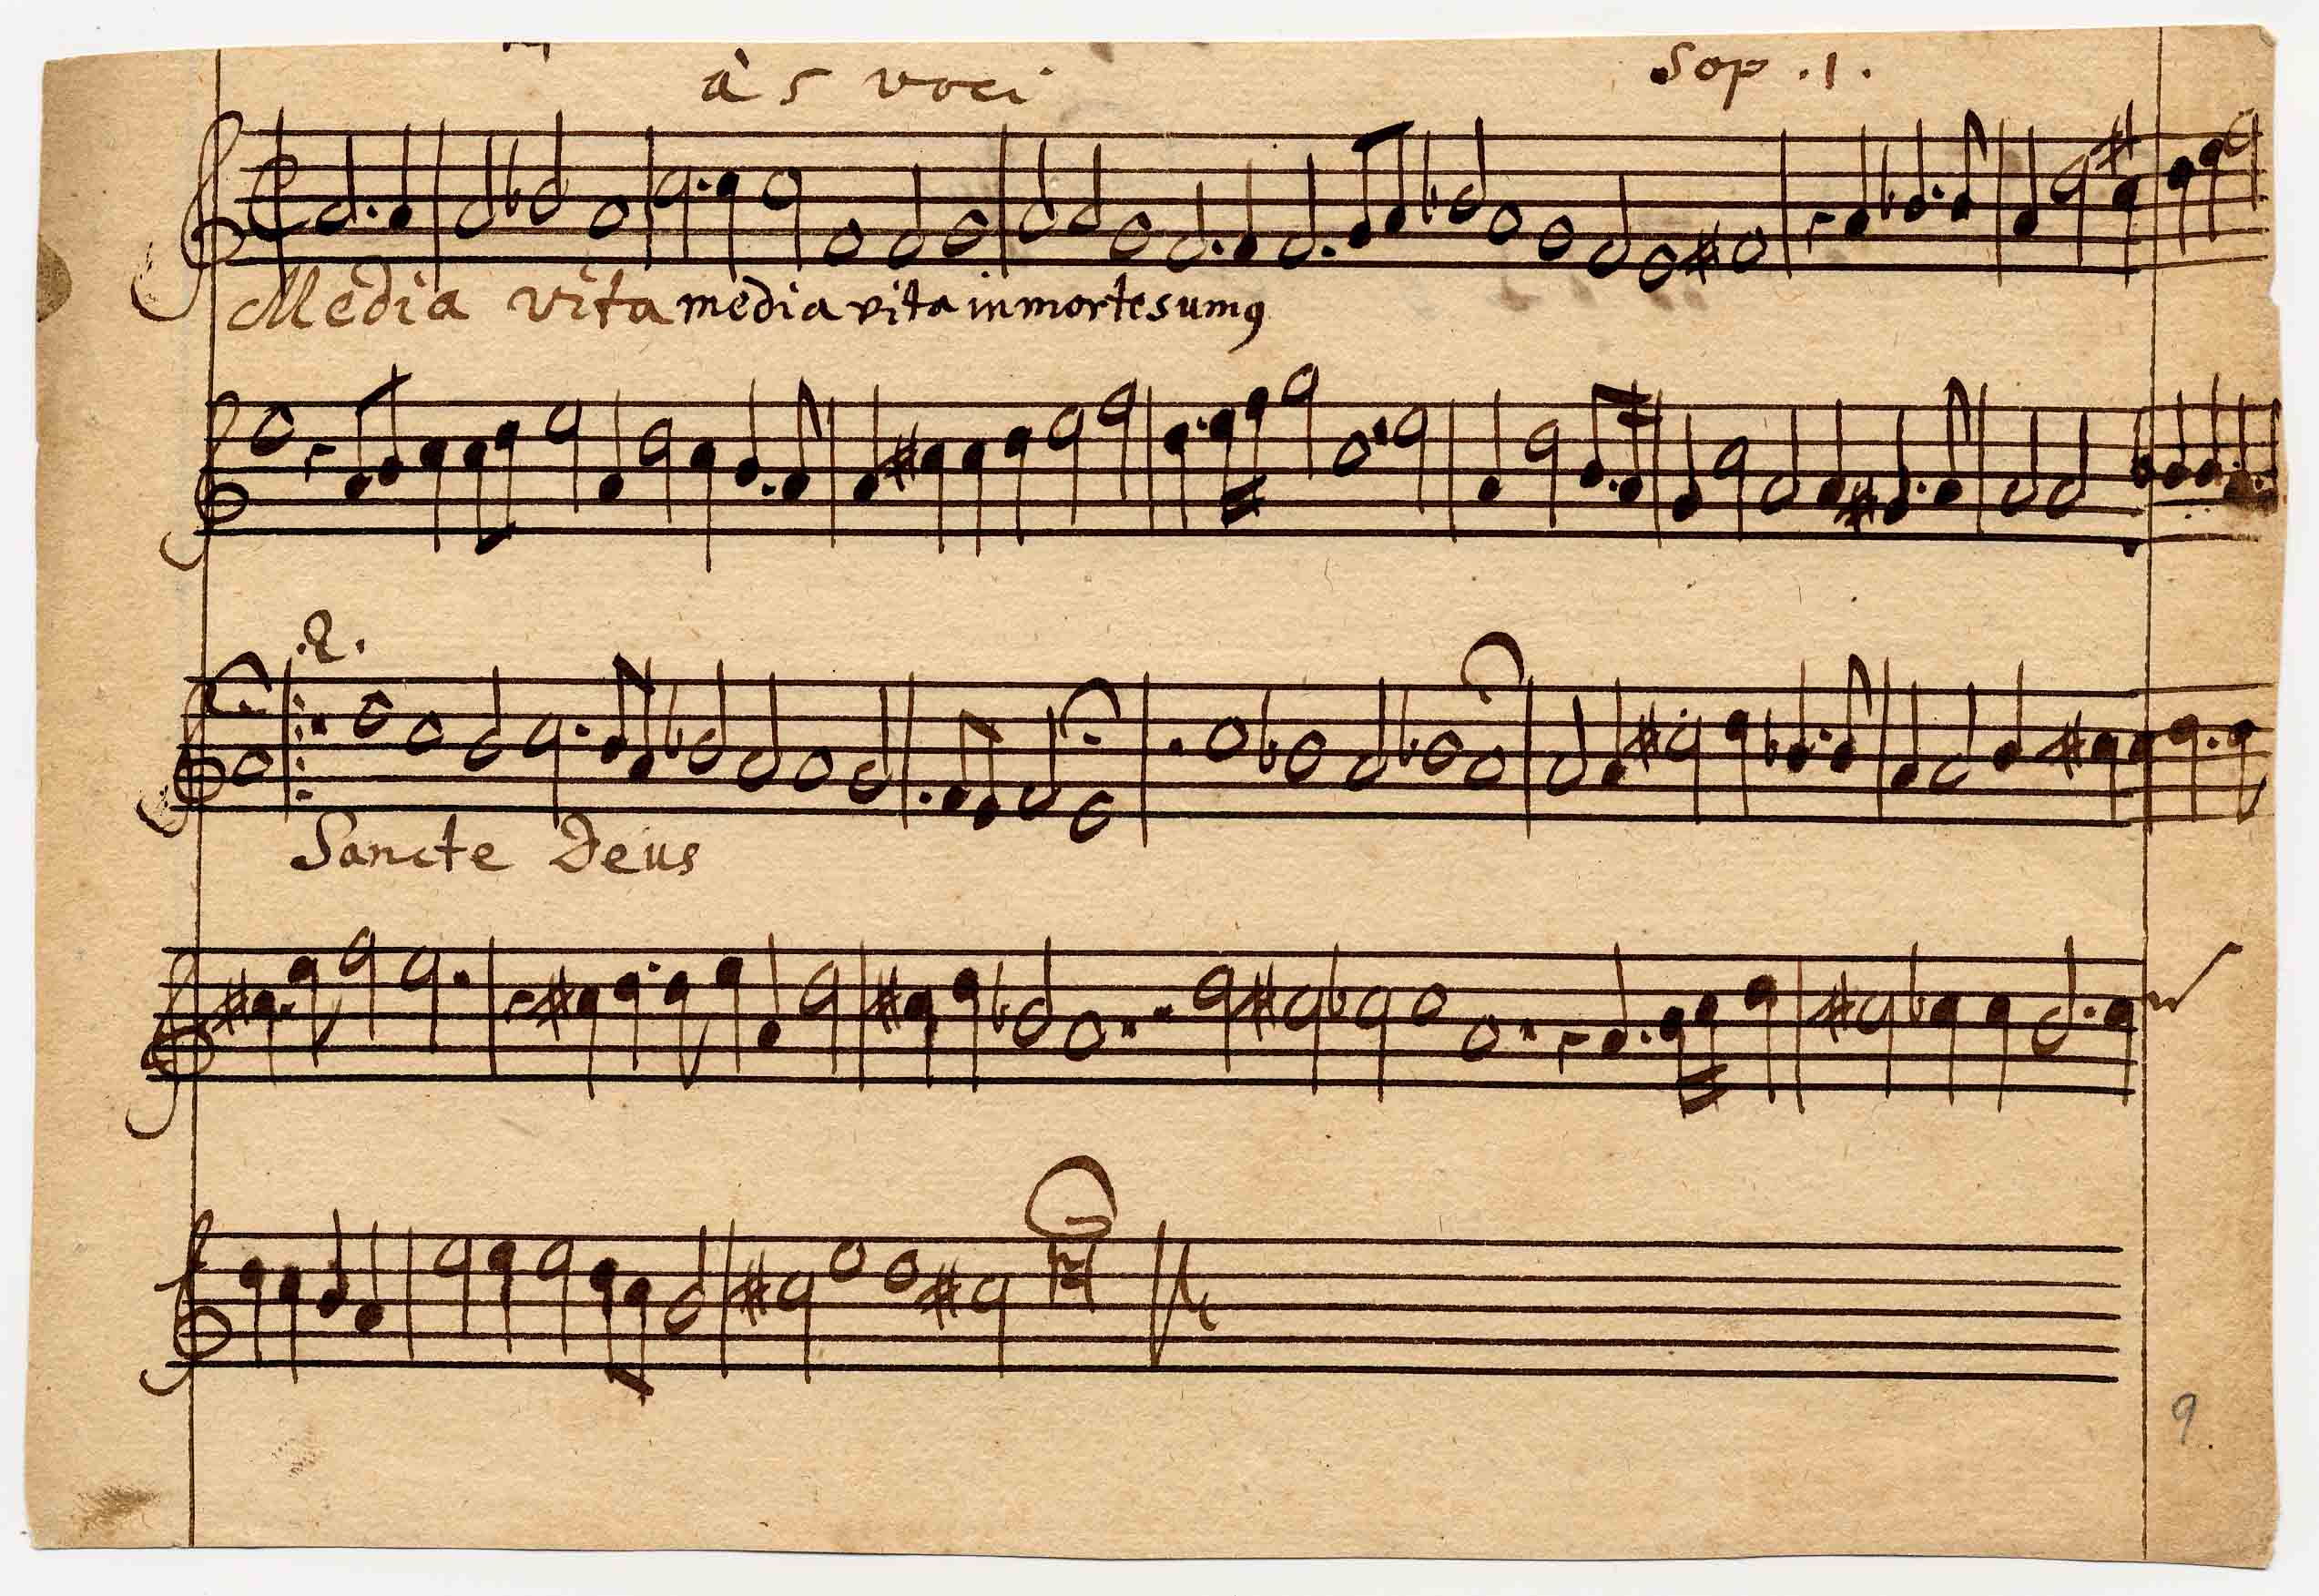 à 5 voci Sop. 1.
Media vita media vita in morte sumꝯ
.2.
Sancte Deus
9.